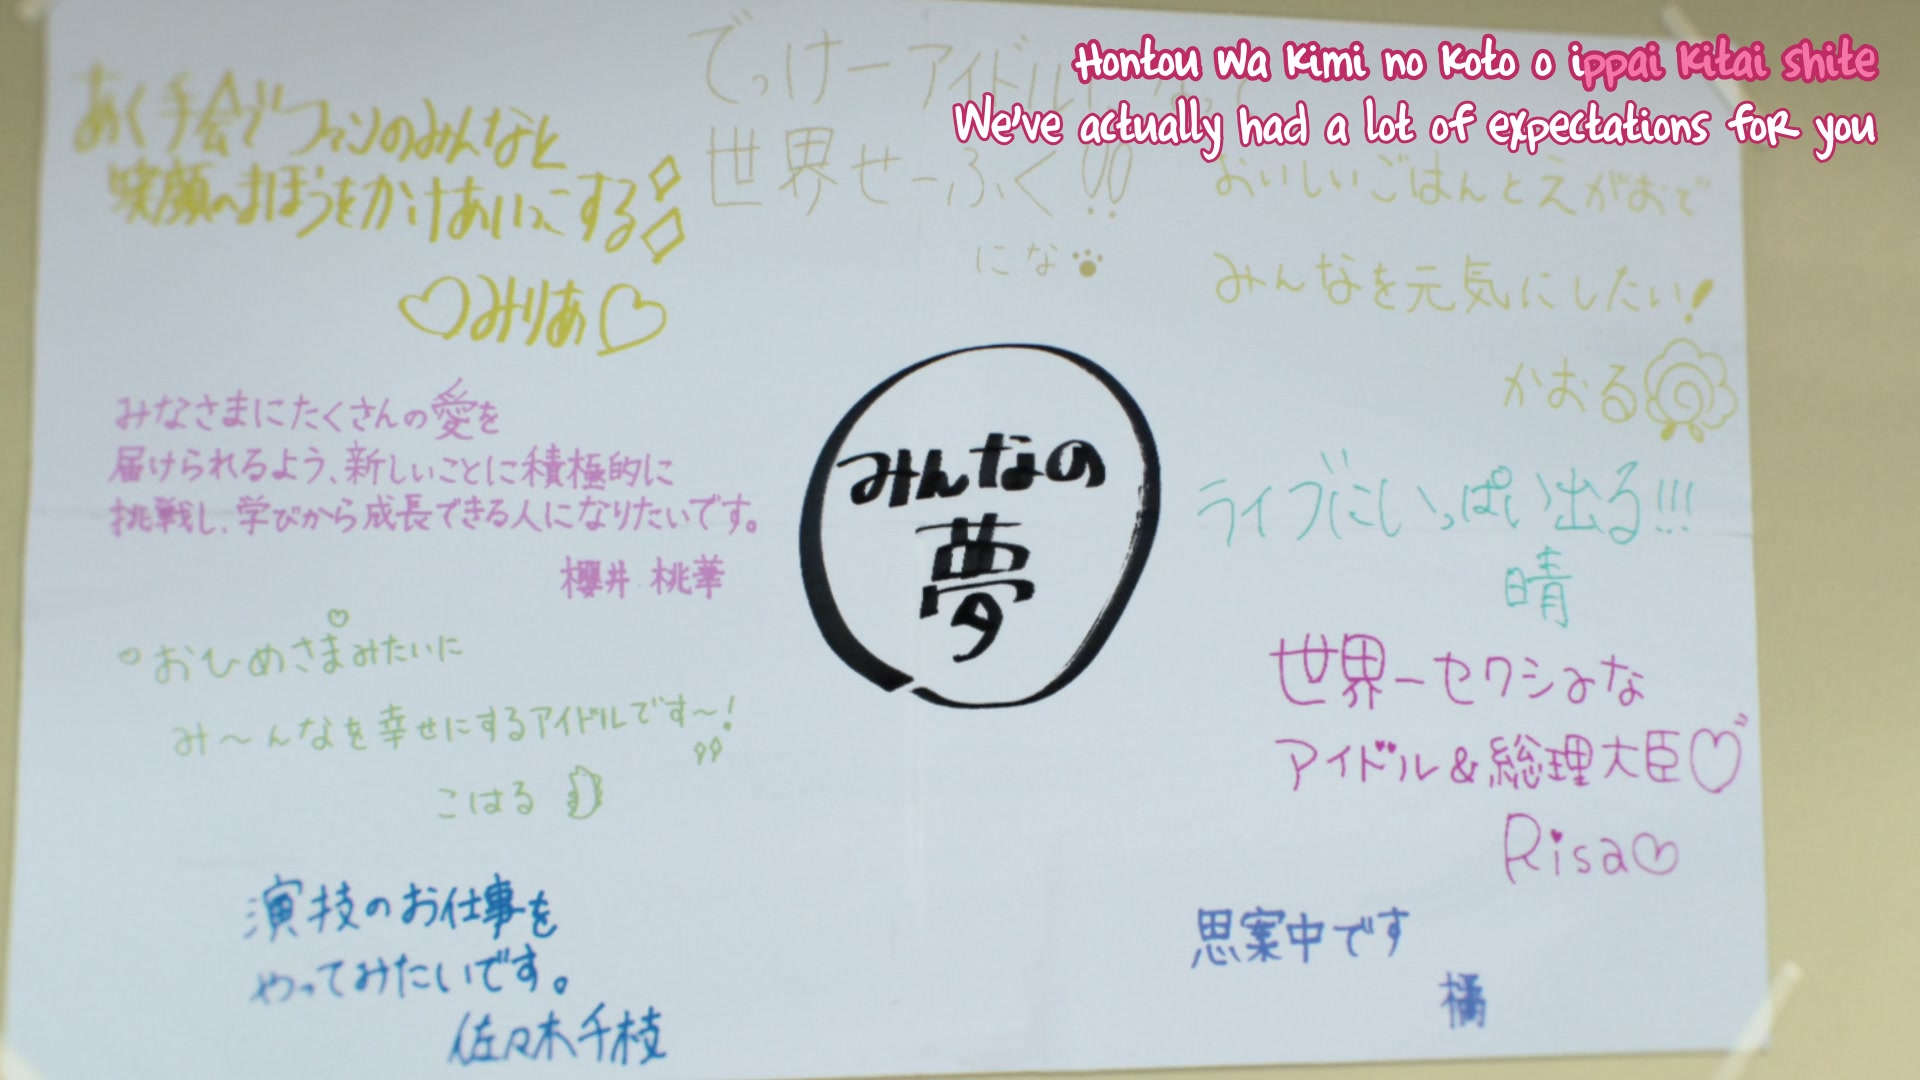 Hontou wa kimi no koto o ippai kitai shite
We've actually had a lot of expectations for you
あく手会でファンのみんなと
笑顔のまほうをかけあいっこする
みりあ
でっけーアイドルになって
世界せーふく!!
にな
おいしいごはんとえがおで
みんなを元気にしたい!
かおる
みなさまにたくさんの愛を
届けられるよう、新しいことに積極的に
挑戦し、学びから成長できる人になりたいです。
櫻井 桃華
みんなの
夢
ライブにいっぱい出る!!!
晴
おひめさまみたいに
み〜んなを幸せにするアイドルです〜!
こはる
世界一セクシーな
アイドル&総理大臣
Risa
演技のお仕事を
やってみたいです。
佐々木千枝
思案中です
橘